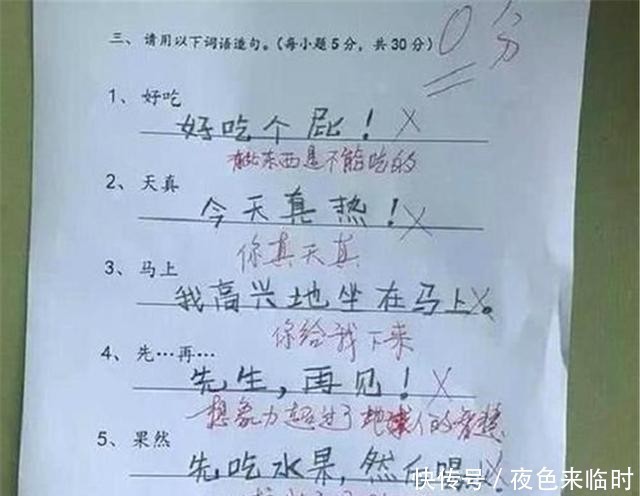 三、请用以下词语造句。(每小题5分，共30分)
0分
1、好吃
好吃个屁！×
有些东西是不能吃的
2、天真
今天真热！×
你真天真
3、马上
我高兴地坐在马上。×
你给我下来
4、先…再…
先生，再见！×
想象力超过了地球人的智慧
5、果然
先吃水果，然后喝
快传号／夜色来临时